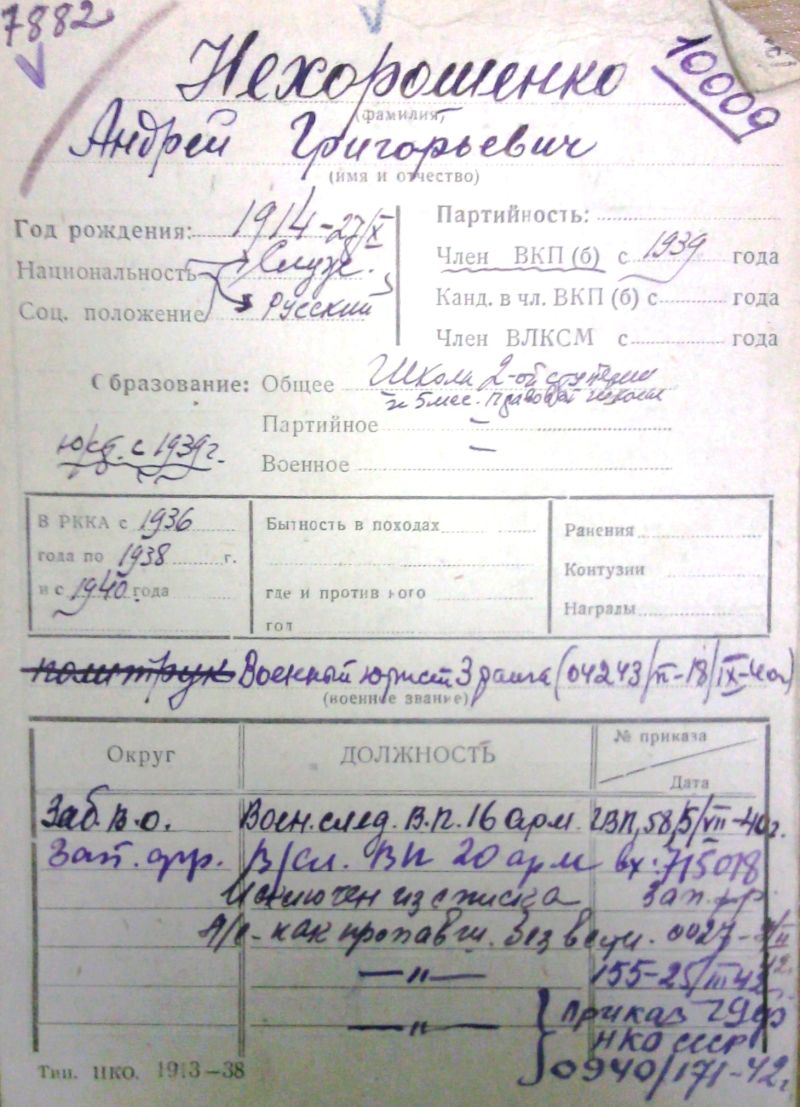 7882
10009
Нехорошенко
(фамилия)
Андрей Григорьевич
(имя и отчество)
Год рождения: 1914-27/X
Национальность Служ.
Соц. положение Русский
Партийность:
Член ВКП (б) с 1939 года
Канд. в чл. ВКП (б) с года
Член ВЛКСМ с года
Образование: Общее Школа 2-ой ступени
и 5 мес. правовой школы
Партийное —
Военное —
с 1939 г.
В РККА с 1936
года по 1938 г.
и с 1940 года
Бытность в походах
где и против кого
год
Ранения
Контузии
Награды
политрук Военный юрист 3 ранга (04243/п-18/IX-40г)
(военное звание)
Округ ДОЛЖНОСТЬ № приказа
Дата
Заб. в. о. Воен. след. В.П. 16 арм. ГВП, 58, 5/VII-40г.
Зап. фр. В/сл. ВП 20 арм вх: 715018
Исключен из списка Зап. фр.
л/с - как пропавш. без вести. 0027-
—"— 155-25/III 42
—"— Приказ
НКО СССР
0940/171-42г
Тип. НКО. 1913—38